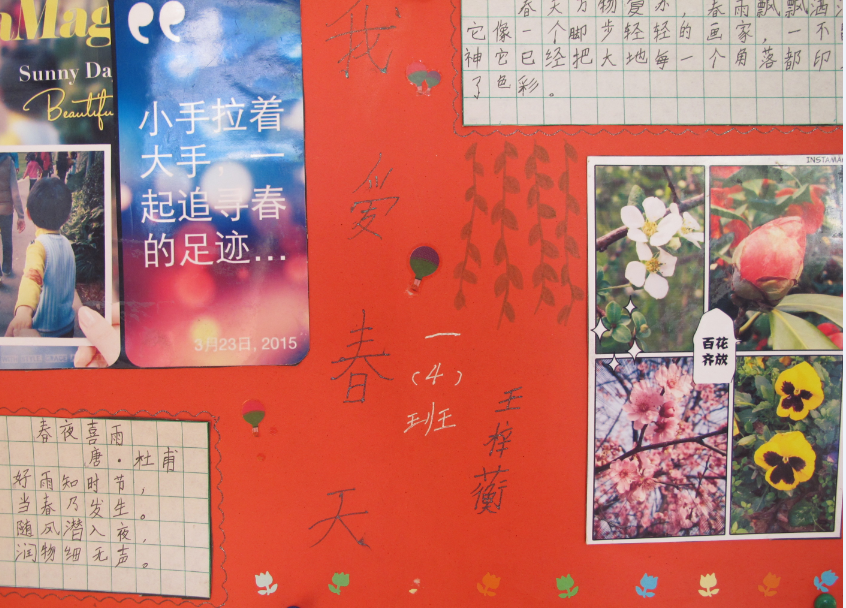 Mag
Sunny Da
Beautifu
小手拉着
大手，一
起追寻春
的足迹...
3月23日, 2015
我爱春天
一
（4）
班
王梓蘅
春天万物复苏，春雨飘飘洒
它像一个脚步轻轻的画家，一不
神它已经把大地每一个角落都印
了色彩。
INSTAMA
百花
齐放
春夜喜雨
唐·杜甫
好雨知时节，
当春乃发生。
随风潜入夜，
润物细无声。